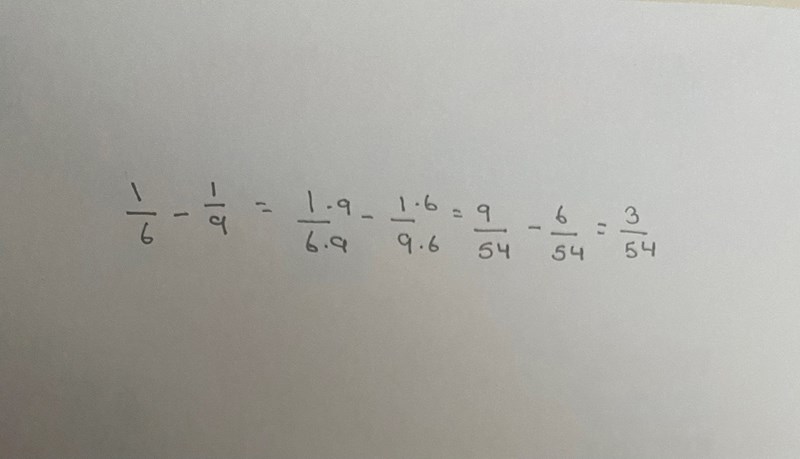 1/6 - 1/9 = 1·9/6·9 - 1·6/9·6 = 9/54 - 6/54 = 3/54